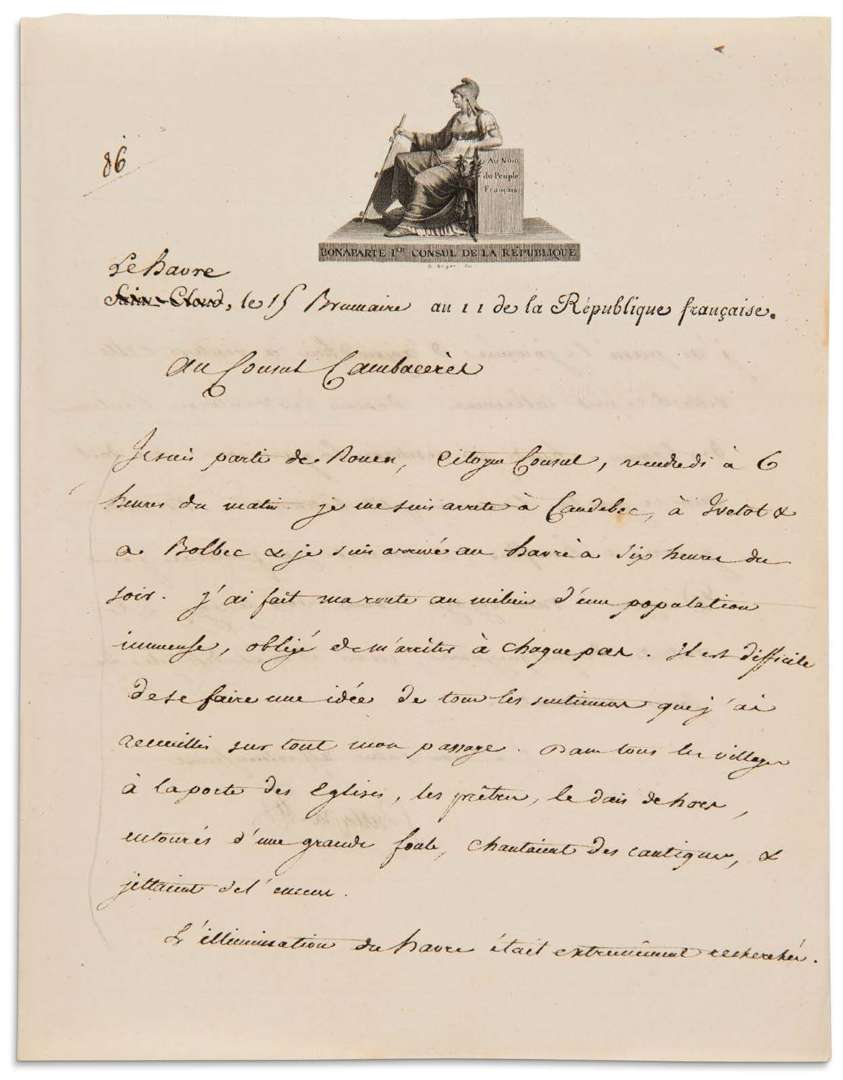 86
Au Nom
du Peuple
Français
BONAPARTE 1er CONSUL DE LA RÉPUBLIQUE
Le havre
Saint-Cloud, le 15 Brumaire an 11 de la République française.
Au Consul Cambacérès
Je suis parti de Rouen, Citoyen Consul, vendredi à 6
heures du matin. je me suis arrêté à Caudebec, à Ivetot &
a Bolbec & je suis arrivé au havre à six heures du
soir. J'ai fait ma route au milieu d'une population
immense, obligé de m'arrêter à chaque pas. Il est difficile
de se faire une idée de tous les sentimens que j'ai
recueillis sur tout mon passage. Dans tous les villages
à la porte des Eglises, les prêtres, le dais dehors,
entourés d'une grande foule, chantaient des cantiques, &
jettaient de l'encens.
L'illumination du havre était extrêmement recherchée.